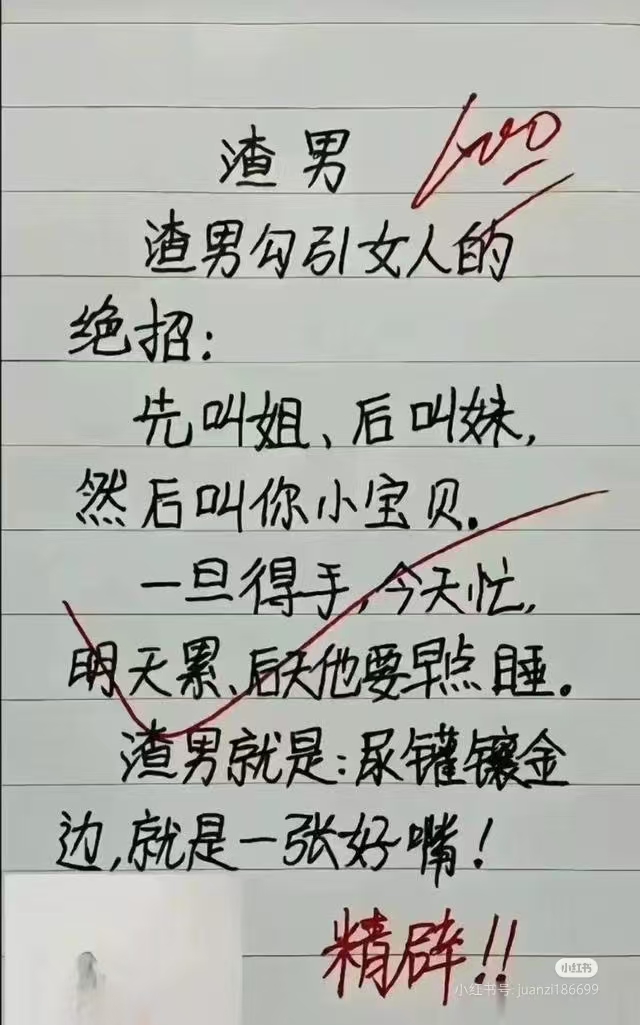 渣男
100
渣男勾引女人的
绝招:
先叫姐、后叫妹,
然后叫你小宝贝。
一旦得手,今天忙,
明天累、后天他要早点睡。
渣男就是:尿罐镶金
边,就是一张好嘴!
精辟!!
小红书
小红书号: juanzi186699